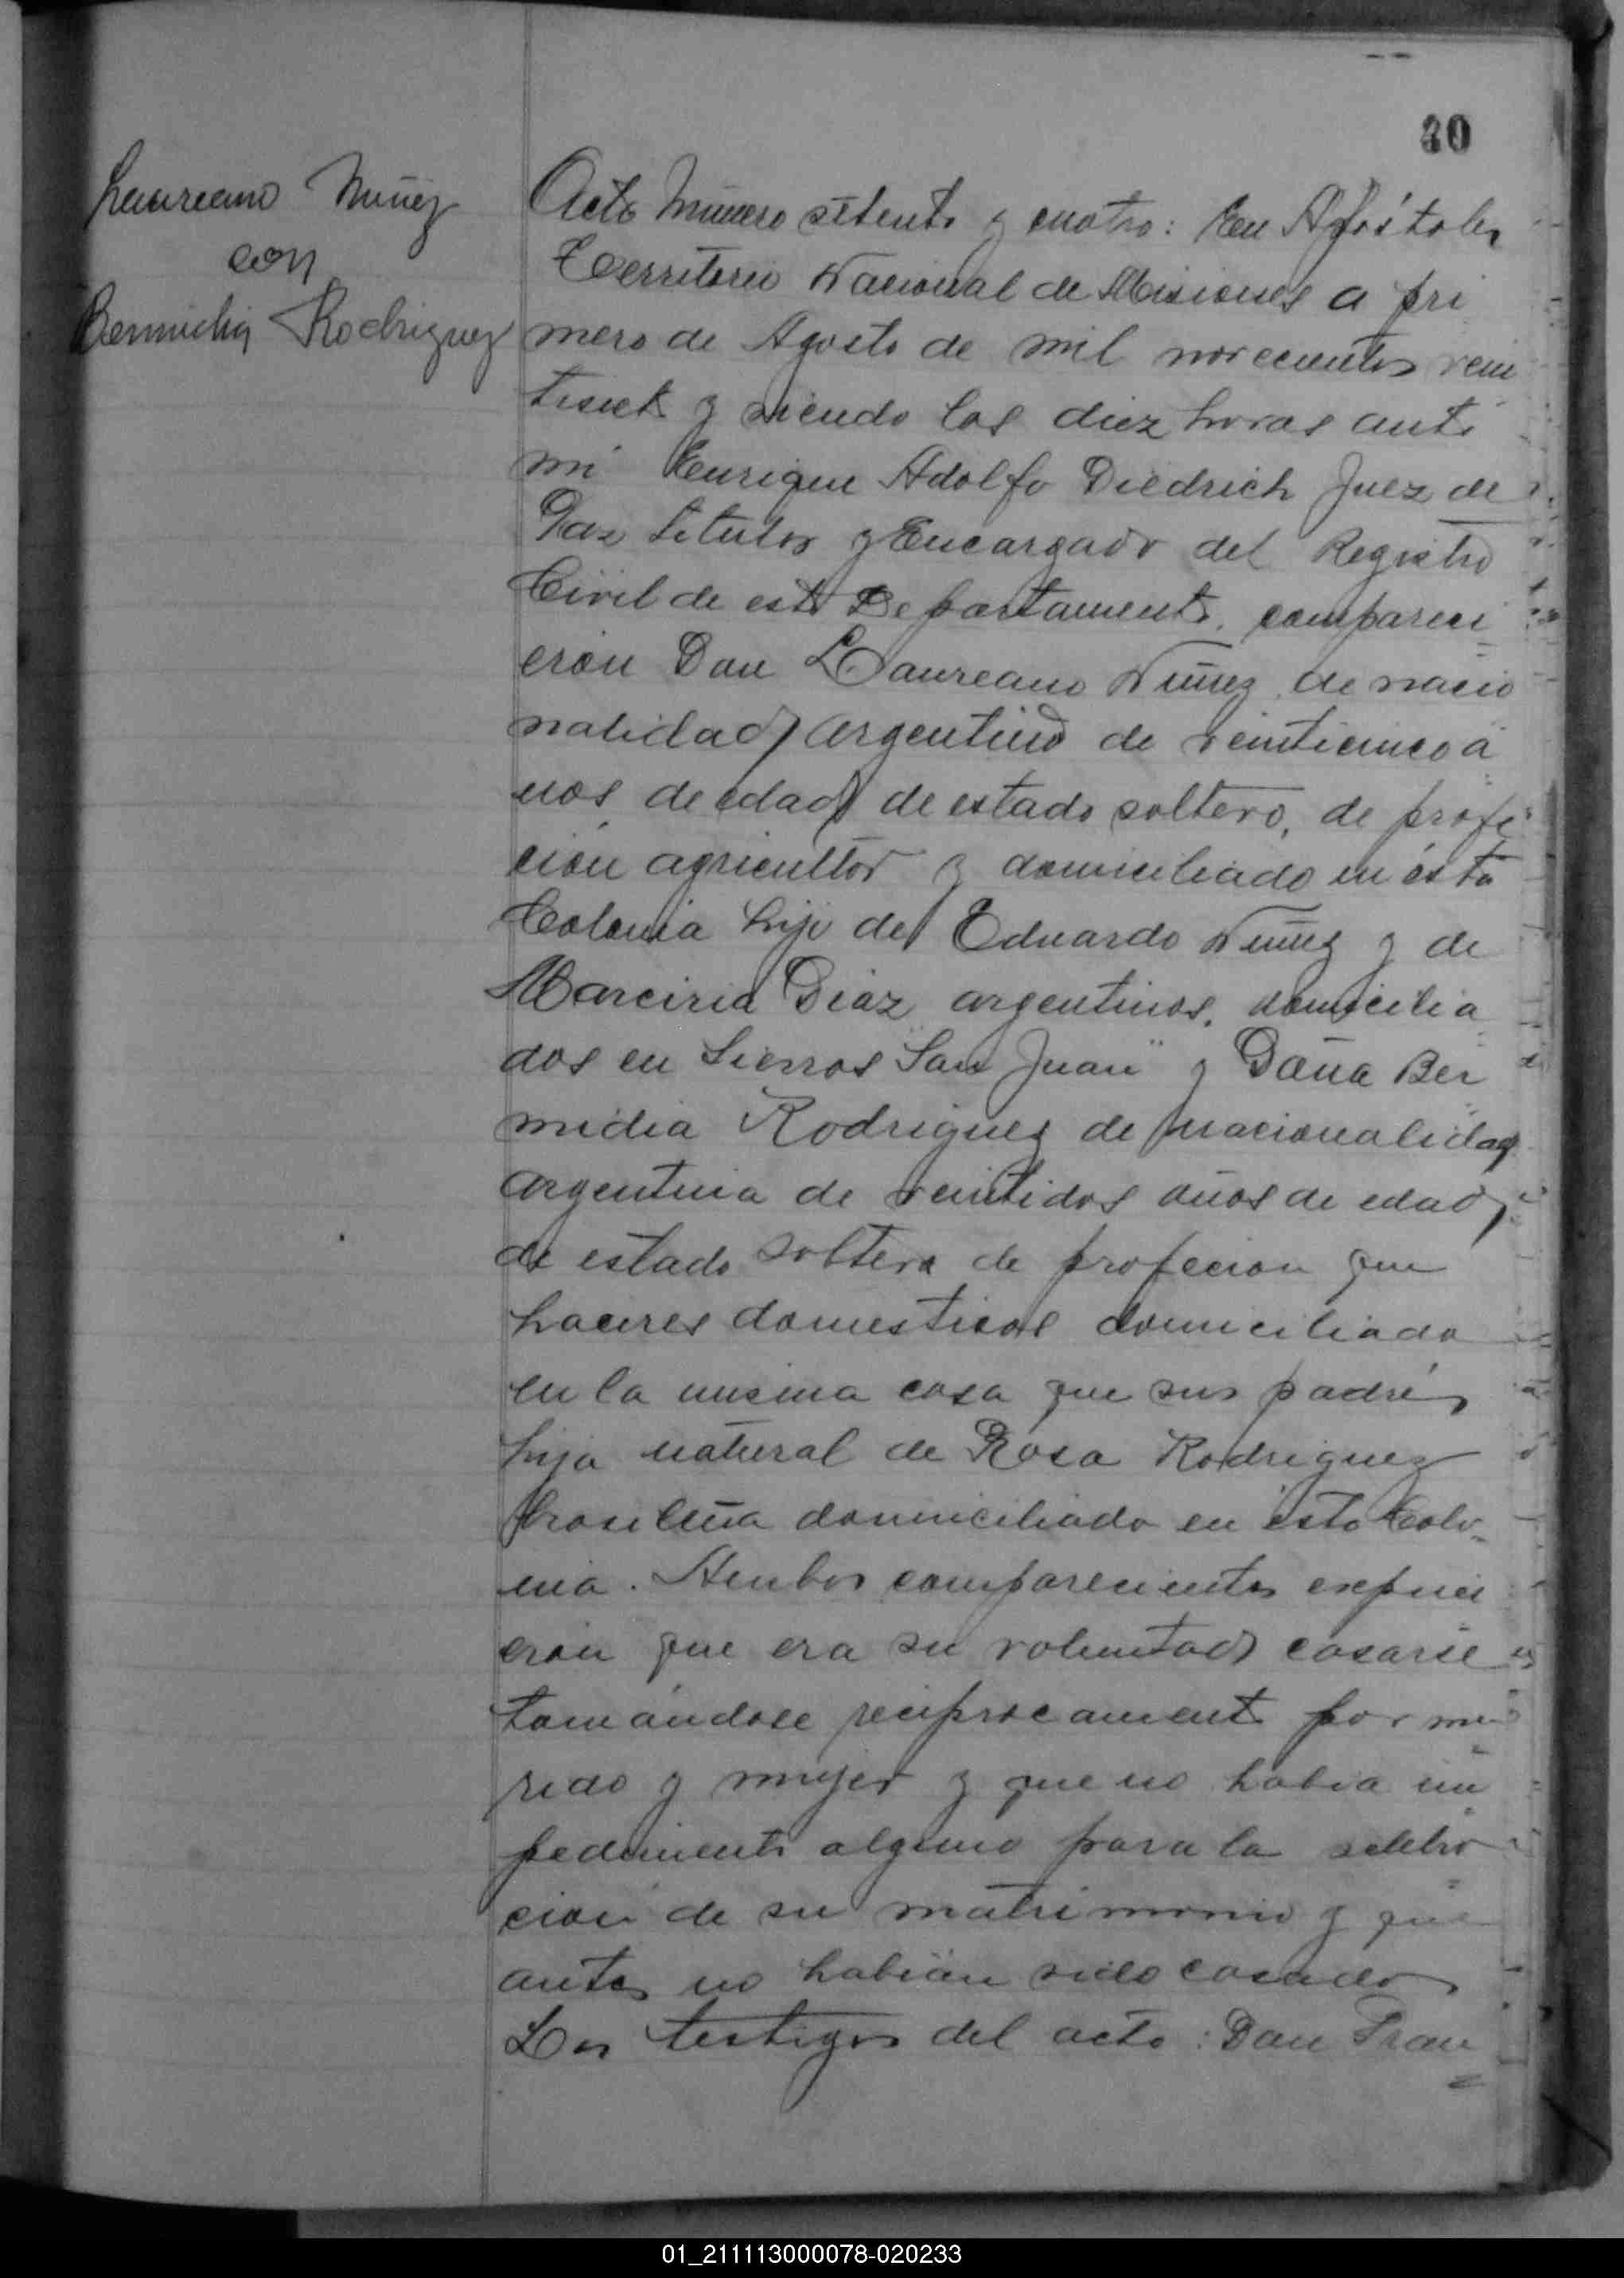 40
Laureano Nuñez
con
Bermidia Rodriguez
Acto Número setenta y cuatro: En Apóstoles
Territorio Nacional de Misiones a pri
mero de Agosto de mil novecientos vein
tisiete y siendo las diez horas ante
mi Enrique Adolfo Diedrich Juez de
Paz Titular y Encargado del Registro
Civil de este Departamento, compareci
eron Don Laureano Nuñez, de nacio
nalidad argentino de veinticinco a
ños de edad de estado soltero, de profe
cion agricultor y domiciliado en ésta
Colonia hijo de Eduardo Nuñez y de
Marciria Diaz, argentinos, domicilia
dos en Sierras "San Juan" y Doña Ber
midia Rodriguez de nacionalidad
argentina de veintidos años de edad,
de estado soltera de profecion que
haceres domesticos domiciliada
en la misma casa que sus padres
hija natural de Rosa Rodriguez
brasileña domiciliada en ésta Colo-
nia. Ambos comparecientes expusi
eron que era su voluntad casarse
tomándose reciprocamente por ma
rido y mujer y que no habia im
pedimento alguno para la selebra
cion de su matrimonio y que
antes no habian sido casados
Los testigos del acto: Don Fran
01_211113000078-020233